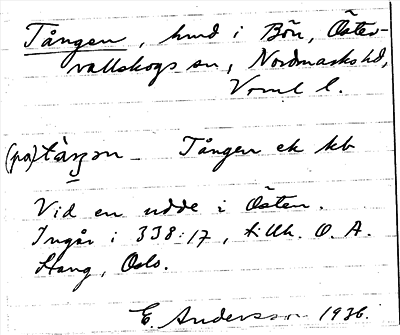 Tången, hmd i Bön, Öster-
vallskogs sn, Nordmarks hd,
Vrml l.
(på) tàŋən Tången ek kb
Vid en udde i Östen.
Ingår i 338:17, tillh. O. A.
Stang, Oslo.
E. Andersson 1936.